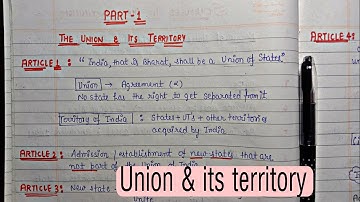 PART-1
THE UNION & ITS TERRITORY
ARTICLE 1 : "India, that is Bharat, shall be a Union of States"
Union → Agreement (×)
No state has the right to get separated from it
Territory of India : States + UTs + other territories
acquired by India
ARTICLE 2: Admission / establishment of new states that are
not part of the Union of India
ARTICLE 3: New state
Unite
ARTICLE 4:
Union & its territory